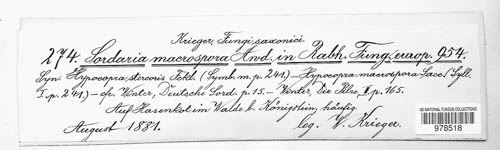 Krieger, Fungi saxonici.
274. Sordaria macrospora Awd. in Rabh. Fung. europ. 954.
Syn. Hypocopra stercoris Fckl. (Symb. m. p. 241.) — Hypocopra macrospora Sacc. (Syll.
I. p. 241.) — cfr. Winter, Deutsche Sord. p. 15. — Winter, Die Pilze, II. p. 165.
Auf Hasenkot im Walde b. Königstein, häufig.
August 1881. leg. W. Krieger.
US NATIONAL FUNGUS COLLECTIONS
978518